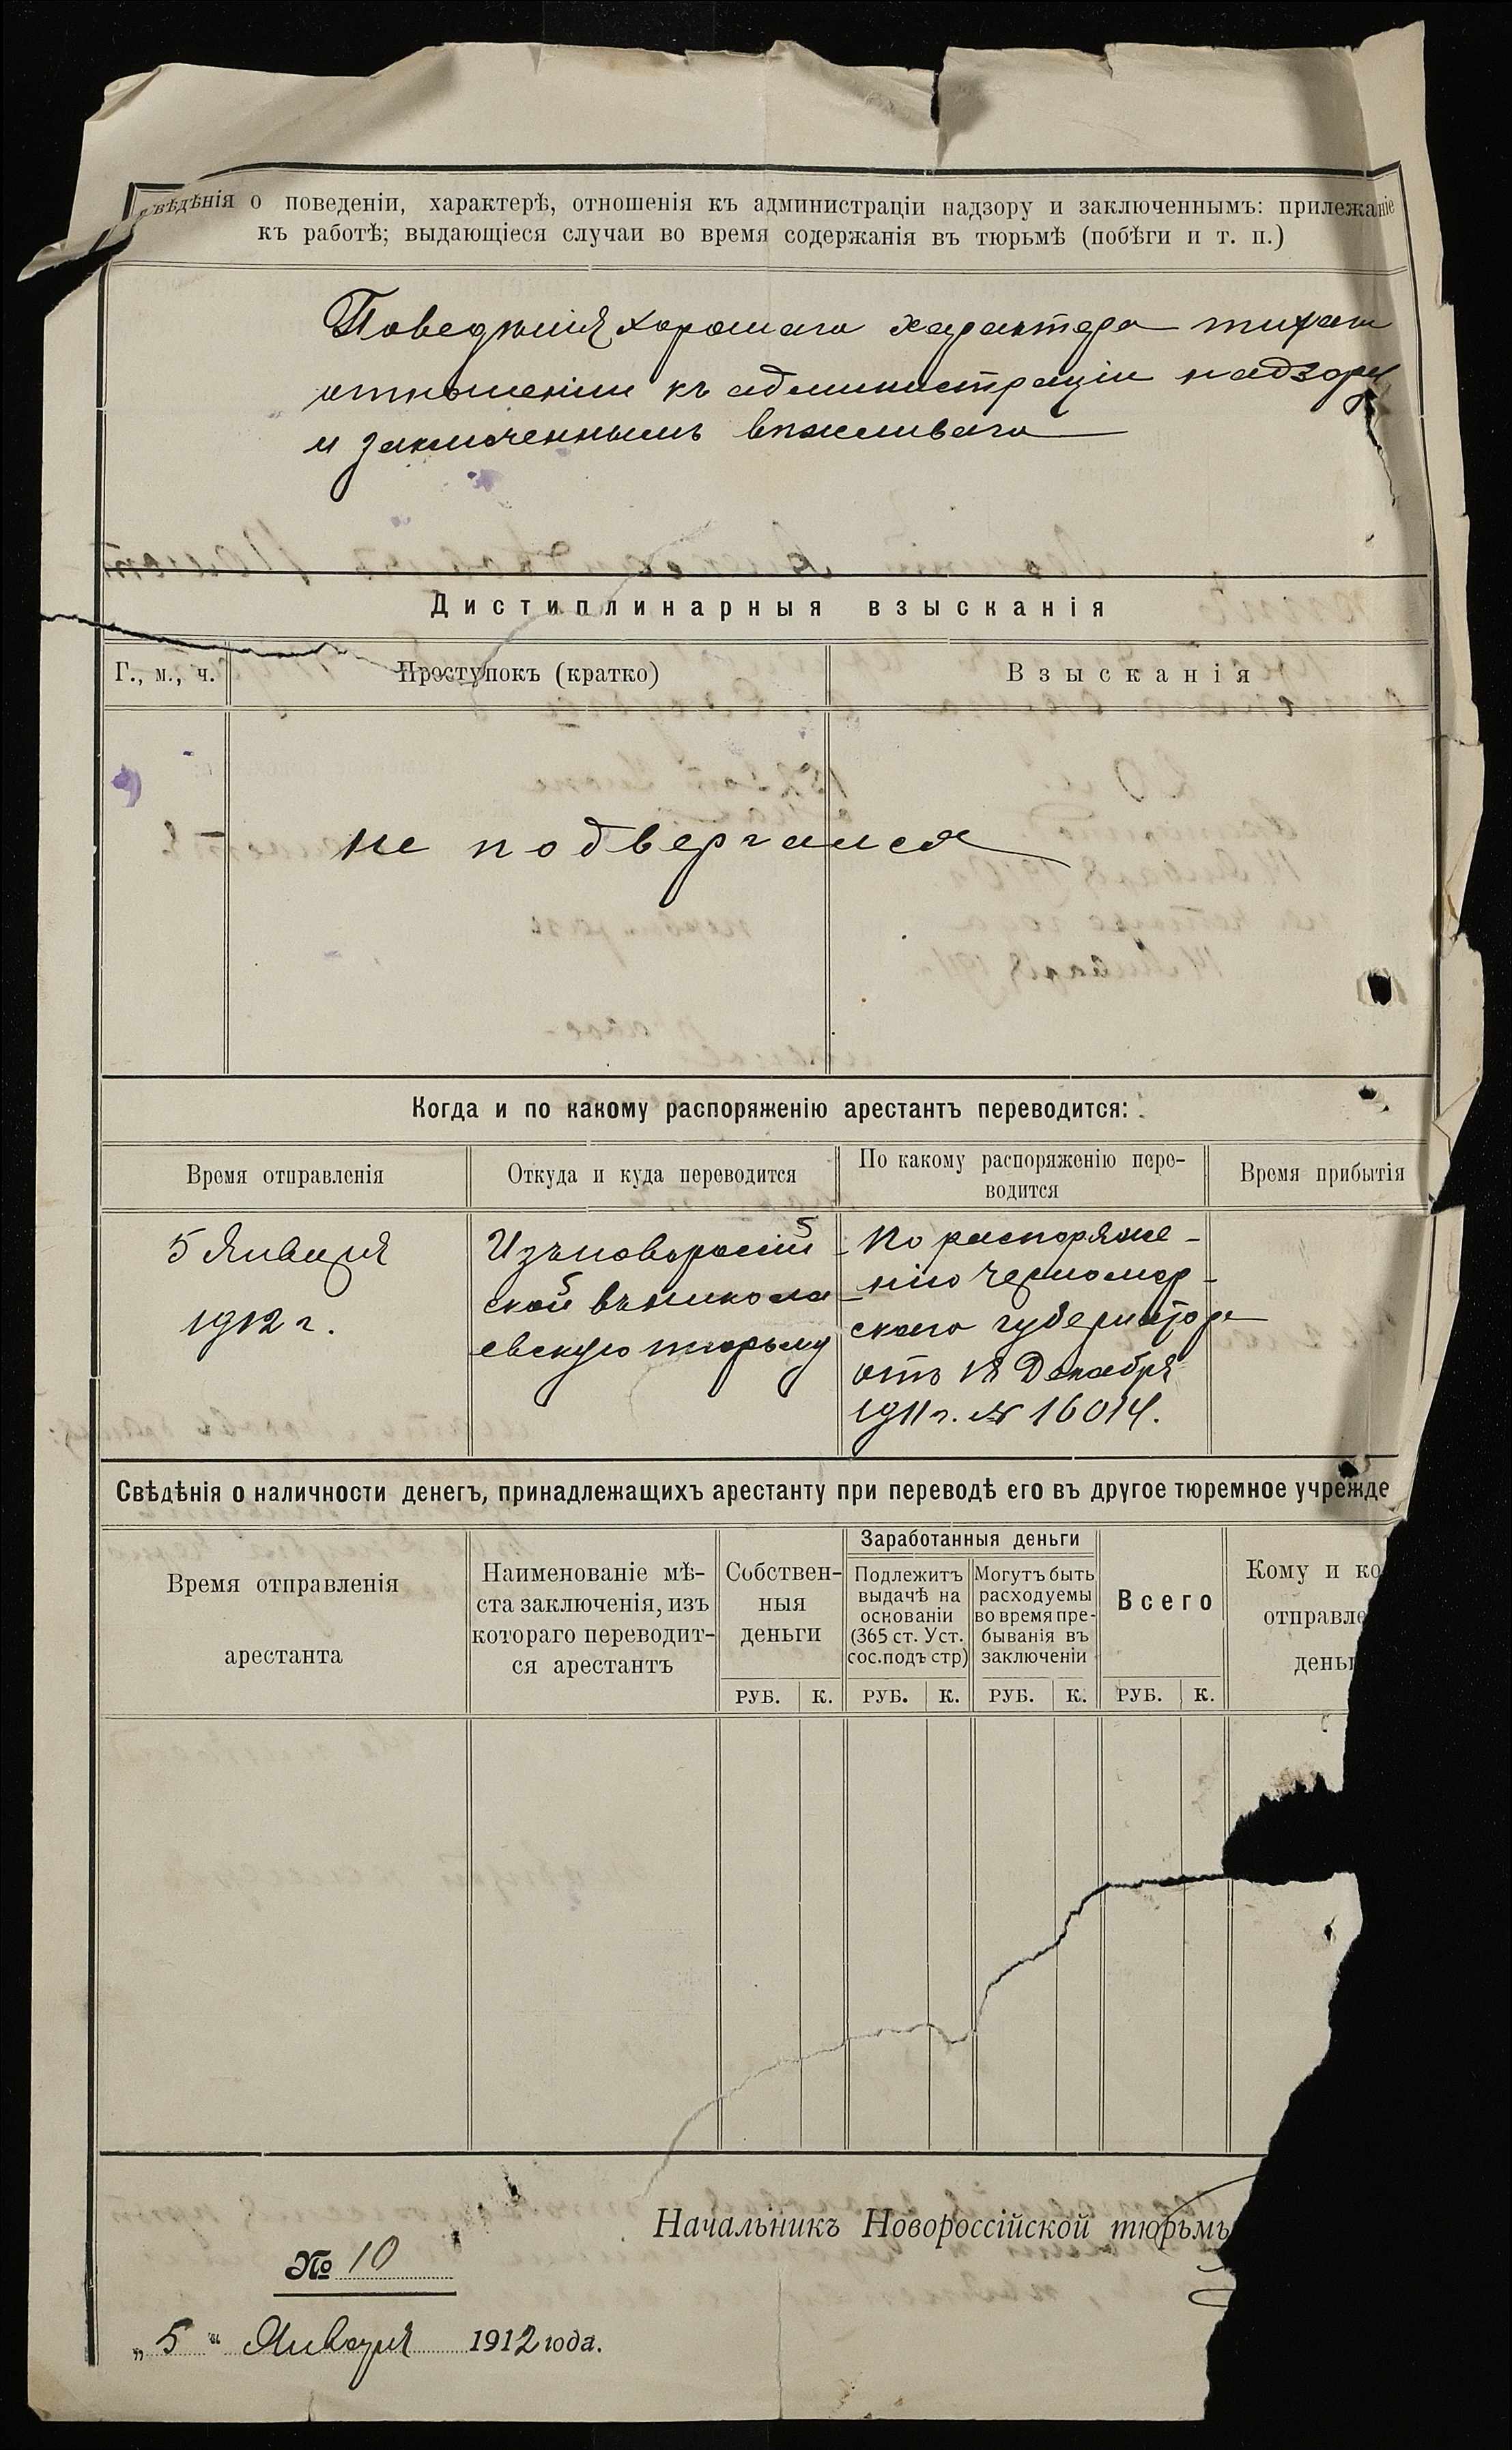 вѣдѣнія о поведеніи, характерѣ, отношенія къ администраціи надзору и заключеннымъ: прилежаніе
къ работѣ; выдающіеся случаи во время содержанія въ тюрьмѣ (побѣги и т. п.)
Поведѣнія хорошаго характера тихаго
отношеніи къ администраціи надзору
и заключеннымъ вѣжливаго
Дистиплинарныя взысканія
Г., м., ч.
Проступокъ (кратко)
Взысканія
не подвергался
Когда и по какому распоряженію арестантъ переводится:
Время отправленія
Откуда и куда переводится
По какому распоряженію пере-
водится
Время прибытія
5 Января
1912 г.
Изъ новороссій
ской въ никола
евскую тюрьму
По распоряже-
нію Черномор-
скаго губернатора
отъ 18 Декабря
1911 г. № 16014.
Свѣдѣнія о наличности денегъ, принадлежащихъ арестанту при переводѣ его въ другое тюремное учрежде
Время отправленія
арестанта
Наименованіе мѣ-
ста заключенія, изъ
котораго переводит-
ся арестантъ
Собствен-
ныя
деньги
Заработанныя деньги
Подлежитъ
выдачѣ на
основаніи
(365 ст. Уст.
сос. подъ стр)
Могутъ быть
расходуемы
во время пре-
быванія въ
заключеніи
Всего
Кому и ко
отправле
деньг
РУБ. К. РУБ. К. РУБ. К. РУБ. К.
Начальникъ Новороссійской тюрьмы
№ 10
„5“ Января 1912 года.